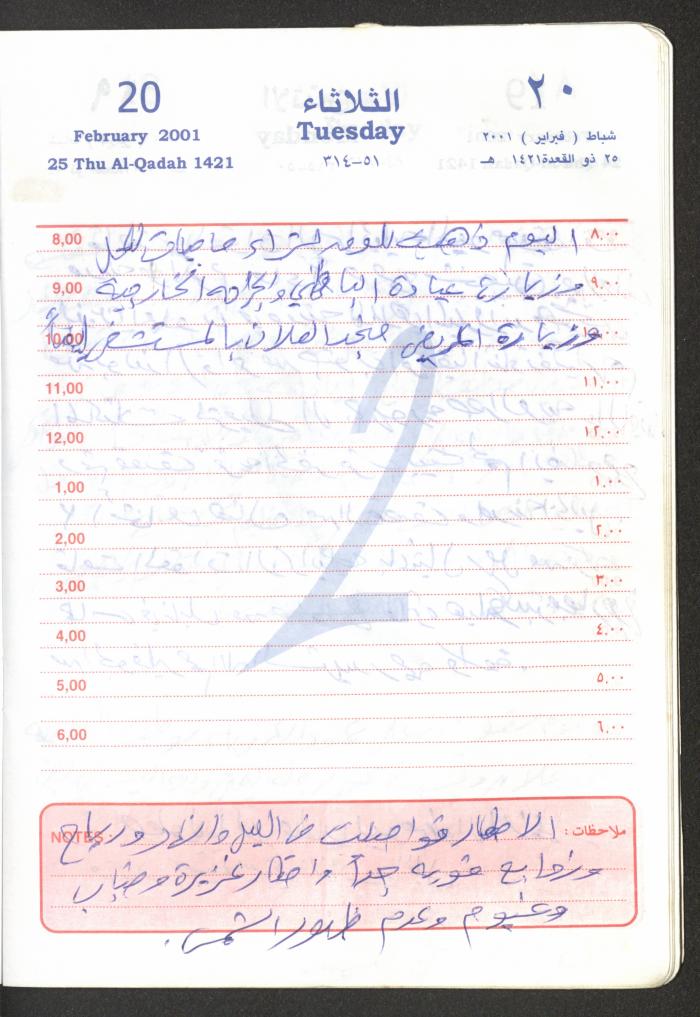 20
February 2001
25 Thu Al-Qadah 1421
الثلاثاء
Tuesday
٣١٤-٥١
٢٠
شباط ( فبراير ) ٢٠٠١
٢٥ ذو القعدة ١٤٢١ هـ
8,00 اليوم ذهبت للسوق لشراء حاجيات للمحل ٨,٠٠
9,00 وزيارة عيادة الباطني والجراحه الخارجية ٩,٠٠
10,00 وزيارة المريض العلان بالمستشفى أيضاً ١٠,٠٠
11,00 ١١,٠٠
12,00 ١٢,٠٠
1,00 ١,٠٠
2,00 ٢,٠٠
3,00 ٣,٠٠
4,00 ٤,٠٠
5,00 ٥,٠٠
6,00 ٦,٠٠
2
NOTES : ملاحظات : الامطار تواصلت في الليل والنهار ورياح
وزوابع قويه جداً وامطار غزيرة وضباب
وغيوم وعدم ظهور الشمس .